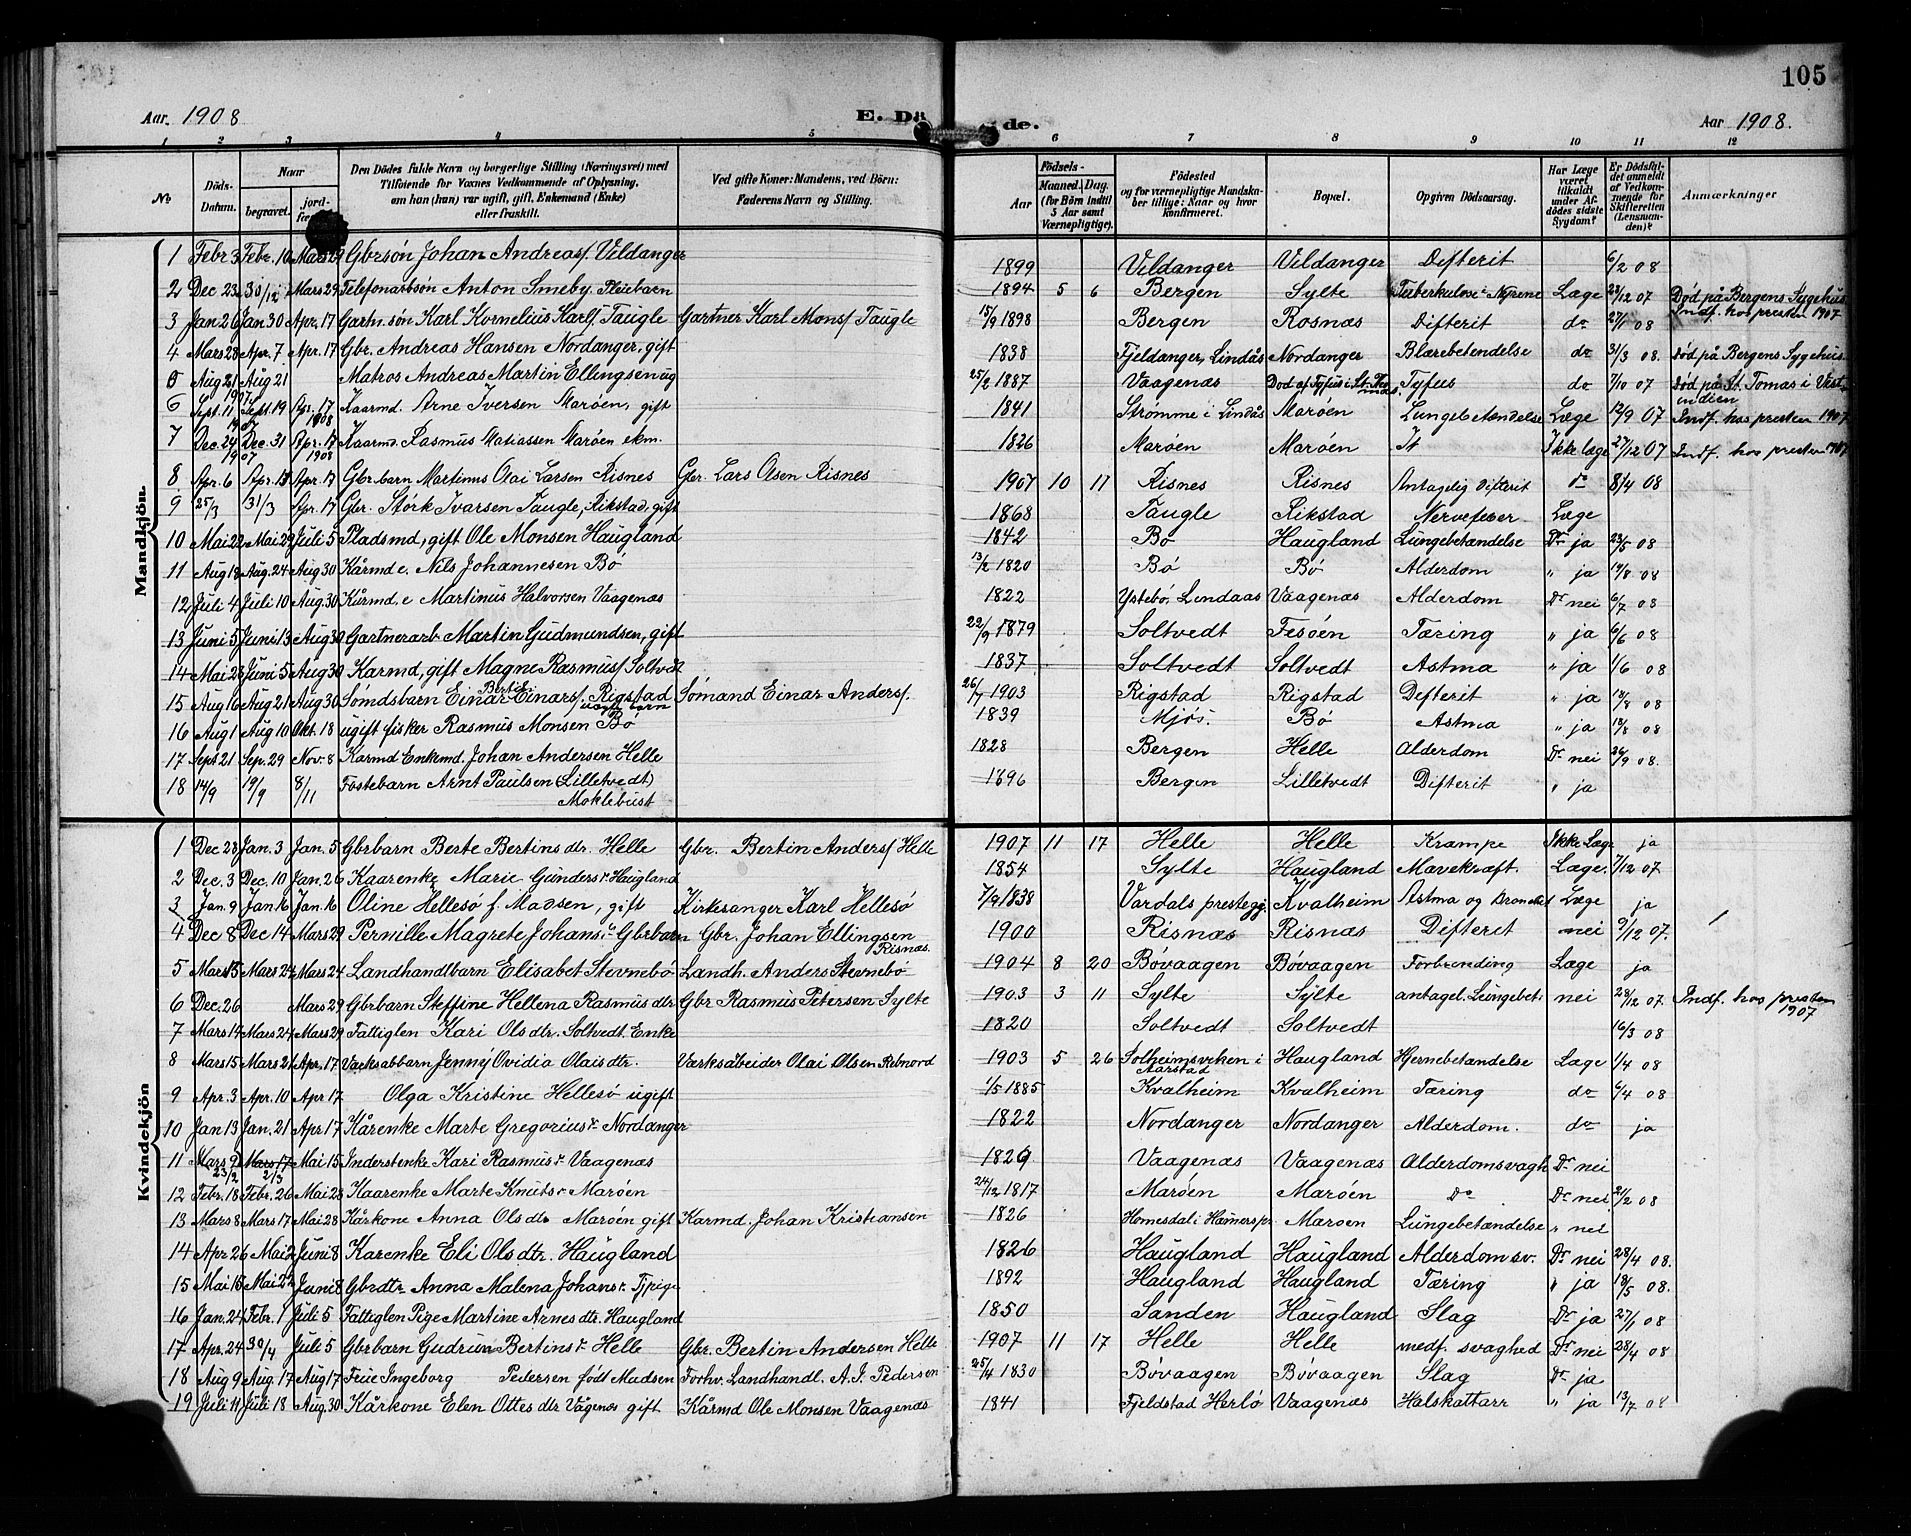 105
Aar. 1908 E. Dö de. Aar 1908.
1 2 3 4 5 6 7 8 9 10 11 12
No Döds-Datum. Naar begravet. jord- Den Dödes fulde Navn og borgerlige Stilling (Næringsvei) med Tilföiende for Voxnes Vedkommende af Oplysning, om han (hun) var ugift, gift, Enkemand (Enke) eller fraskilt. Ved gifte Koner: Mandens, ved Börn: Faderens Navn og Stilling. Födsels- Aar Maaned. Dag. (for Börn indtil 5 Aar samt Værnepligtige). Födested og for værnepligtige Mandskaber tillige: Naar og hvor konfirmeret. Bopæl. Opgiven Dödsaarsag. Har Læge været tilkaldt under Afdödes sidste Sygdom? Er Dödsfaldet anmeldt af Vedkommende for Skifteretten (Lensmanden)? Anmærkninger
Mandkjön.
1 Febr 3 Febr. 10 Mars 29 Gbrsøn Johan Andreasf. Vildanger 1899 Vildanger Vildanger Difterit 6/2 08
2 Dec 23 30/12 Mars 29 Telefonarbsön Anton Smeby. Pleiebarn 1894 5 6 Bergen Sylte Tuberkulose i Nyrene Læge 28/12 07 Død på Bergens Sygehus Indf. hos presten 1907
3 Jan 26 Jan 30 Apr. 17 Gartn.søn Karl Kornelius Karlf. Taugle Gartner Karl Monsf Taugle 15/9 1898 Bergen Rosnæs Difterit do 27/1 08
4 Mars 28 Apr. 7 Apr. 17 Gbr. Andreas Hansen Nordanger, gift 1838 Fjeldanger, Lindås Nordanger Blærebetendelse do 31/3 08. Død på Bergens Sygehus
5 Aug 21 Aug 21 Matros Andreas Martin Ellingsen ug 25/2 1887 Vaagenæs Dod af Tyfus i St. Thomas. Tyfus do 7/10 07 Død på St. Tomas i Vestindien
6 1907 Sept. 11 Sept 19 Apr. 17 1908 Kaarmd. Arne Iversen Marøen, gift 1841 Strømme i Lindås Marøen Lungebetændelse Læge 12/9 07 Indf. hos presten 1907
7 Dec. 24 Dec. 31 1907 Apr. 17 1908 Kaarmd. Rasmus Matiassen Marøen ekm. 1826 Marøen Marøen It Ikke læge 27/12 07 Indf. hos presten 1907
8 Apr. 6 Apr. 13 Apr. 17 Gbr.barn Martinus Olai Larsen Risnes Gbr. Lars Olsen Risnes 1907 10 17 Risnes Risnes Antagelig Difterit do 8/4 08
9 25/3 31/3 Apr. 17 Gbr. Størk Ivarsen Taugle, Rikstad, gift 1868 Taugle Rikstad Nervefeber Læge
10 Mai 22 Mai 29 Juli 5 Pladsmd, gift Ole Monsen Haugland 1842 Bø Haugland Lungebetændelse Dr ja 23/5 08
11 Aug 18 Aug. 24 Aug 30 Kårmd e. Nils Johannesen Bø 13/2 1820 Bø Bø Alderdom " ja 19/8 08
12 Juli 4 Juli 10 Aug. 30 Kårmd. e Martinus Halvorsen Vaagenæs 1822 Ystebø, Lindaas Vaagenæs Alderdom Dr nei 6/7 08
13 Juni 5 Juni 13 Aug 30 Gartnerarb. Martin Gudmundsen, gift 22/9 1879 Soltvedt Fesøen Tæring " ja 6/6 08
14 Mai 28 Juni 5 Aug 30 Karmd, gift Magne Rasmusf. Soltvedt 1837 Soltvedt Soltvedt Astma " ja 1/6 08
15 Aug 16 Aug 21 Aug 30 Sømdsbarn Einar Einarsf. Rigstad Sømand Einar Andersf. 26/7 1903 Rigstad Rigstad Difterit " ja 18/8 08
16 Aug 1 Aug 10 Okt. 18 ugift fisker Rasmus Monsen Bø 1839 Mjøs. Bø Astma " ja 18/8 08
17 Sept 21 Sep. 29 Nov. 8 Karmd Enkmd. Johan Andersen Helle 1828 Bergen Helle Alderdom Dr nei 26/9 08.
18 14/9 19/9 8/11 Fostebarn Arnt Paulsen (Lilletvedt) Moklebust 1896 Bergen Lilletvedt Difterit " ja
Kvindekjön
1 Dec. 28 Jan. 3 Jan. 5 Gbrbarn Berte Bertins dtr. Helle Gbr. Bertin Andersf Helle 1907 11 17 Helle Helle Krampe Ikke Læge ja
2 Dec. 3 Dec. 10 Jan. 26 Kaarenke Marie Gundersdr Haugland 1854 Sylte Haugland Mavekræft. Læge. 7/12 07
3 Jan. 9 Jan 16 Jan. 16 Oline Hellesø f. Madsen, gift Kirkesanger Karl Hellesø 7/9 1838 Vardals prestegj. Kvalheim Astma og Bronchit Læge ja
4 Dec 8 Dec 14 Mars 29 Pernille Magrete Johansdr Gbrbarn Gbr. Johan Ellingsen Risnæs. 1900 Risnæs Risnæs Difterit nei 9/12 07.
5 Mars 15 Mars 24 Mars 24 Landhandlbarn Elisabet Stevnebø Landh. Anders Stevnebø 1904 8 20 Bøvaagen Bøvaagen Forbrending Læge ja
6 Dec. 26 Mars 29 Gbrbarn Steffine Hellena Rasmus dtr Gbr Rasmus Petersen Sylte 1903 3 11 Sylte Sylte antagel. Lungebet. nei 28/12 07. Indf. hos presten 1907
7 Mars 14 Mars 24 Mars 29 Fattiglen Kari Ols dtr. Soltvedt. Enke 1820 Soltvedt Soltvedt 16/3 08
8 Mars 15 Mars 21 Apr. 17 Værksabbarn Jenny Ovidia Olaisdtr. Værksabeider Olai Olsen Rebnord 1903 5 26 Solheimsviken i Aarstad Haugland Hjernebetændelse Læge 1/4 08
9 Apr. 3 Apr. 10 Apr 17 Olga Kristine Hellesø ugift 1/5 1885 Kvalheim Kvalheim Tæring do 6/4 08
10 Jan 13 Jan. 21 Apr 17 Kårenke Marte Gregoriusdr Nordanger 1822 Nordanger Nordanger Alderdom. do ja
11 Mars 9 Mars 17 Mai 15 Inderstenke Kari Rasmusdr Vaagenæs 1829 Vaagenæs Vaagenæs Alderdomsvagh Dr nei
12 23/2 Febr. 18 2/3 Febr. 26 Mai 28 Kaarenke Marte Knutsdr Marøen 24/12 1817 Marøen Marøen Do Dr nei 21/2 08
13 Mars 8 Mars 17 Mai 28 Kårkone Anna Ols dtr Marøen gift Karmd. Johan Kristiansen 1826 Homesdal i Hammers pr. Marøen Lungebetændelse " nei
14 Apr 26 Mai 2 Juni 8 Karenke Eli Ols dtr. Haugland 1826 Haugland Haugland Alderdomsv. Dr nei 28/4 08.
15 Mai 16 Mai 22 Juni 8 Gbrdtr Anna Malena Johansdr. Tjpige 1892 Haugland Haugland Tæring " ja 18/5 08.
16 Jan. 24 Febr. 1 Juli 5 Fattiglen Pige Martine Arnes dtr. Haugland 1850 Sanden Haugland Slag Dr ja 27/1 08
17 Apr. 24 30/4 Juli 5 Gbrbarn Gudrun Bertinsdr Helle Gbr. Bertin Andersen Helle 1907 11 17 Helle Helle medf. svaghed Dr nei 28/4 08
18 Aug 9 Aug. 17 Aug 17 Frue Ingeborg Pedersen født Madsen Forhv. Landhandl. A. J. Pedersen 25/4 1830 Bøvaagen Bøvaagen Slag Dr ja
19 Juli 11 Juli 18 Aug. 30 Kårkone Elen Ottes dtr Vågenæs gift Kårmd Ole Monsen Vaagenæs 1841 Fjeldstad Herlø Vaagenæs Halskattarr " ja 13/7 08